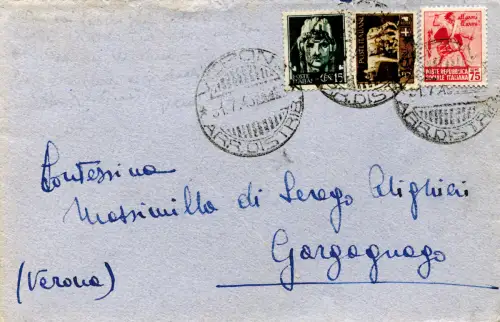 POSTE ITALIANE
CEN. 15
POSTE ITALIANE
POSTE REPUBBLICA
SOCIALE ITALIANA
75
ARR. DISTRIB
Contessina
Massimilla di Serego Alighieri
Gargagnago
(Verona)